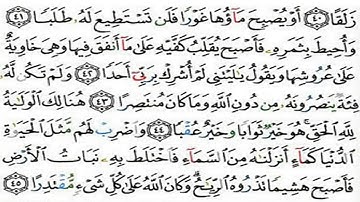 زَلَقًا ﴿٤٠﴾ أَوْ يُصْبِحَ مَآؤُهَا غَوْرًا فَلَن تَسْتَطِيعَ لَهُۥ طَلَبًا ﴿٤١﴾
وَأُحِيطَ بِثَمَرِهِۦ فَأَصْبَحَ يُقَلِّبُ كَفَّيْهِ عَلَىٰ مَآ أَنفَقَ فِيهَا وَهِىَ خَاوِيَةٌ
عَلَىٰ عُرُوشِهَا وَيَقُولُ يَٰلَيْتَنِى لَمْ أُشْرِكْ بِرَبِّىٓ أَحَدًا ﴿٤٢﴾ وَلَمْ تَكُن لَّهُۥ
فِئَةٌ يَنصُرُونَهُۥ مِن دُونِ ٱللَّهِ وَمَا كَانَ مُنتَصِرًا ﴿٤٣﴾ هُنَالِكَ ٱلْوَلَٰيَةُ
لِلَّهِ ٱلْحَقِّ هُوَ خَيْرٌ ثَوَابًا وَخَيْرٌ عُقْبًا ﴿٤٤﴾ وَٱضْرِبْ لَهُم مَّثَلَ ٱلْحَيَوٰةِ
ٱلدُّنْيَا كَمَآءٍ أَنزَلْنَٰهُ مِنَ ٱلسَّمَآءِ فَٱخْتَلَطَ بِهِۦ نَبَاتُ ٱلْأَرْضِ
فَأَصْبَحَ هَشِيمًا تَذْرُوهُ ٱلرِّيَٰحُ وَكَانَ ٱللَّهُ عَلَىٰ كُلِّ شَىْءٍ مُّقْتَدِرًا ﴿٤٥﴾